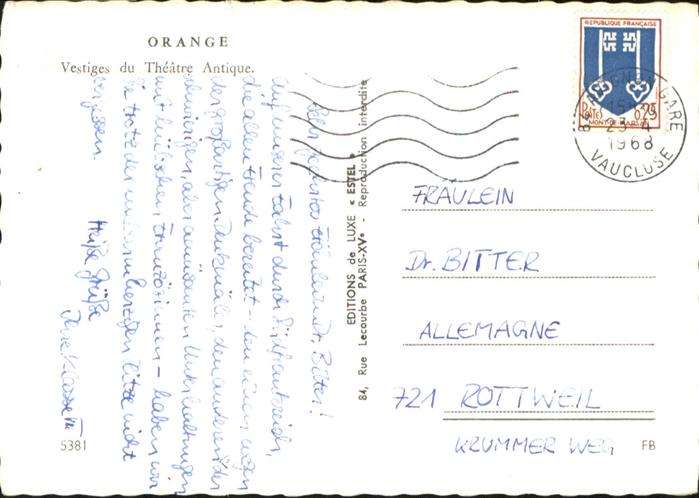 ORANGE
Vestiges du Théâtre Antique.
Sehr geehrtes Fräulein Dr. Bitter!
Auf unserer Fahrt durch Südfrankreich,
die allen Freude bereitet – den einen wegen
der großartigen Denkmäler, den anderen der
schwierigen aber amüsanten Unterhaltungen
mit hübschen Französinnen – haben wir
Sie trotz der unbarmherzigen Hitze nicht
vergessen.
Heiße Grüße
Ihre Klasse
5381
EDITIONS de LUXE « ESTEL »
84, Rue Lecourbe PARIS-XVe - Reproduction interdite
REPUBLIQUE FRANÇAISE
POSTES 0,25
MONT-DE-MARSAN
GARE
23 - 4
1968
VAUCLUSE
FRÄULEIN
Dr. BITTER
ALLEMAGNE
721 ROTTWEIL
KRUMMER WEG
FB